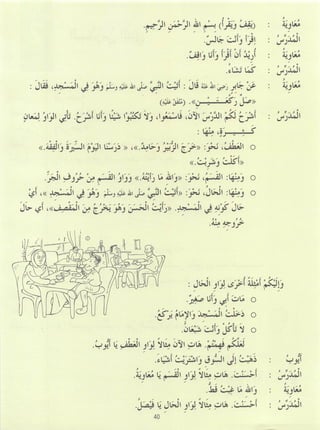 مُعَاوِيَةُ : (يَقِفُ وَيَقْرَأُ) بِسْمِ اللهِ الرَّحْمٰنِ الرَّحِيْمِ.
المُدَرِّسُ : اِقْرَأْ وَأَنْتَ جَالِسٌ.
مُعَاوِيَةُ : أُرِيْدُ أَنْ أَقْرَأَ وَأَنَا وَاقِفٌ.
المُدَرِّسُ : كَمَا تَشَاءُ.
مُعَاوِيَةُ : عَنْ جَابِرٍ رضي الله عنه قَالَ : أَتَيْتُ النَّبِيَّ صلى الله عليه وسلم وَهُوَ فِي الْمَسْجِدِ، فَقَالَ :
«صَلِّ رَكْعَتَيْنِ» (متفق عليه).
المُدَرِّسُ : أَشْرَحُ لَكُمُ الدَّرْسَ الآنَ، فَاسْتَمِعُوا، وَلَا تَكْتُبُوا شَيْئًا وَأَنَا أَشْرَحُ. تَأْتِي الْوَاوُ لِمَعَانٍ
كَثِيْرَةٍ، مِنْهَا :
العَطْفُ، نَحْوُ: «خَرَجَ الزُّبَيْرُ وَحَامِدٌ.»، «دَرَسْنَا الْيَوْمَ النَّحْوَ وَالْفِقْهَ.»
«أَكَلْتُ وَشَرِبْتُ.»
وَمِنْهَا: القَسَمُ، نَحْوُ: «وَاللهِ مَا رَأَيْتُهُ.» وَوَاوُ الْقَسَمِ مِنْ حُرُوفِ الْجَرِّ.
وَمِنْهَا: الحَالُ، نَحْوُ: «أَتَيْتُ النَّبِيَّ صلى الله عليه وسلم وَهُوَ فِي الْمَسْجِدِ»، أَيْ
حَالَ كَوْنِهِ فِي الْمَسْجِدِ. «رَأَيْتُ الحَسَنَ وَهُوَ يَخْرُجُ مِنَ الْمَقْصَفِ»، أَيْ حَالَ
خُرُوجِهِ مِنْهُ.
وَإِلَيْكُمْ أَمْثِلَةً أُخْرَى لِوَاوِ الْحَالِ :
○ مَاتَ أَبِي وَأَنَا صَغِيْرٌ.
○ دَخَلْتُ الْمَسْجِدَ وَالإِمَامُ يَرْكَعُ.
○ لَا تَأْكُلْ وَأَنْتَ شَبْعَانُ.
لَعَلَّكُمْ فَهِمْتُمْ. هَاتِ الآنَ مِثَالًا لِوَاوِ الْعَطْفِ يَا أَيُّوبُ.
أَيُّوبُ : ذَهَبْتُ إِلَى السُّوقِ وَاشْتَرَيْتُ أَشْيَاءَ.
المُدَرِّسُ : أَحْسَنْتَ. هَاتِ مِثَالًا لِوَاوِ الْقَسَمِ يَا مُعَاوِيَةُ.
مُعَاوِيَةُ : وَاللهِ مَا غِبْتُ قَطُّ.
المُدَرِّسُ : أَحْسَنْتَ. هَاتِ مِثَالًا لِوَاوِ الْحَالِ يَا فَيْصَلُ.
40